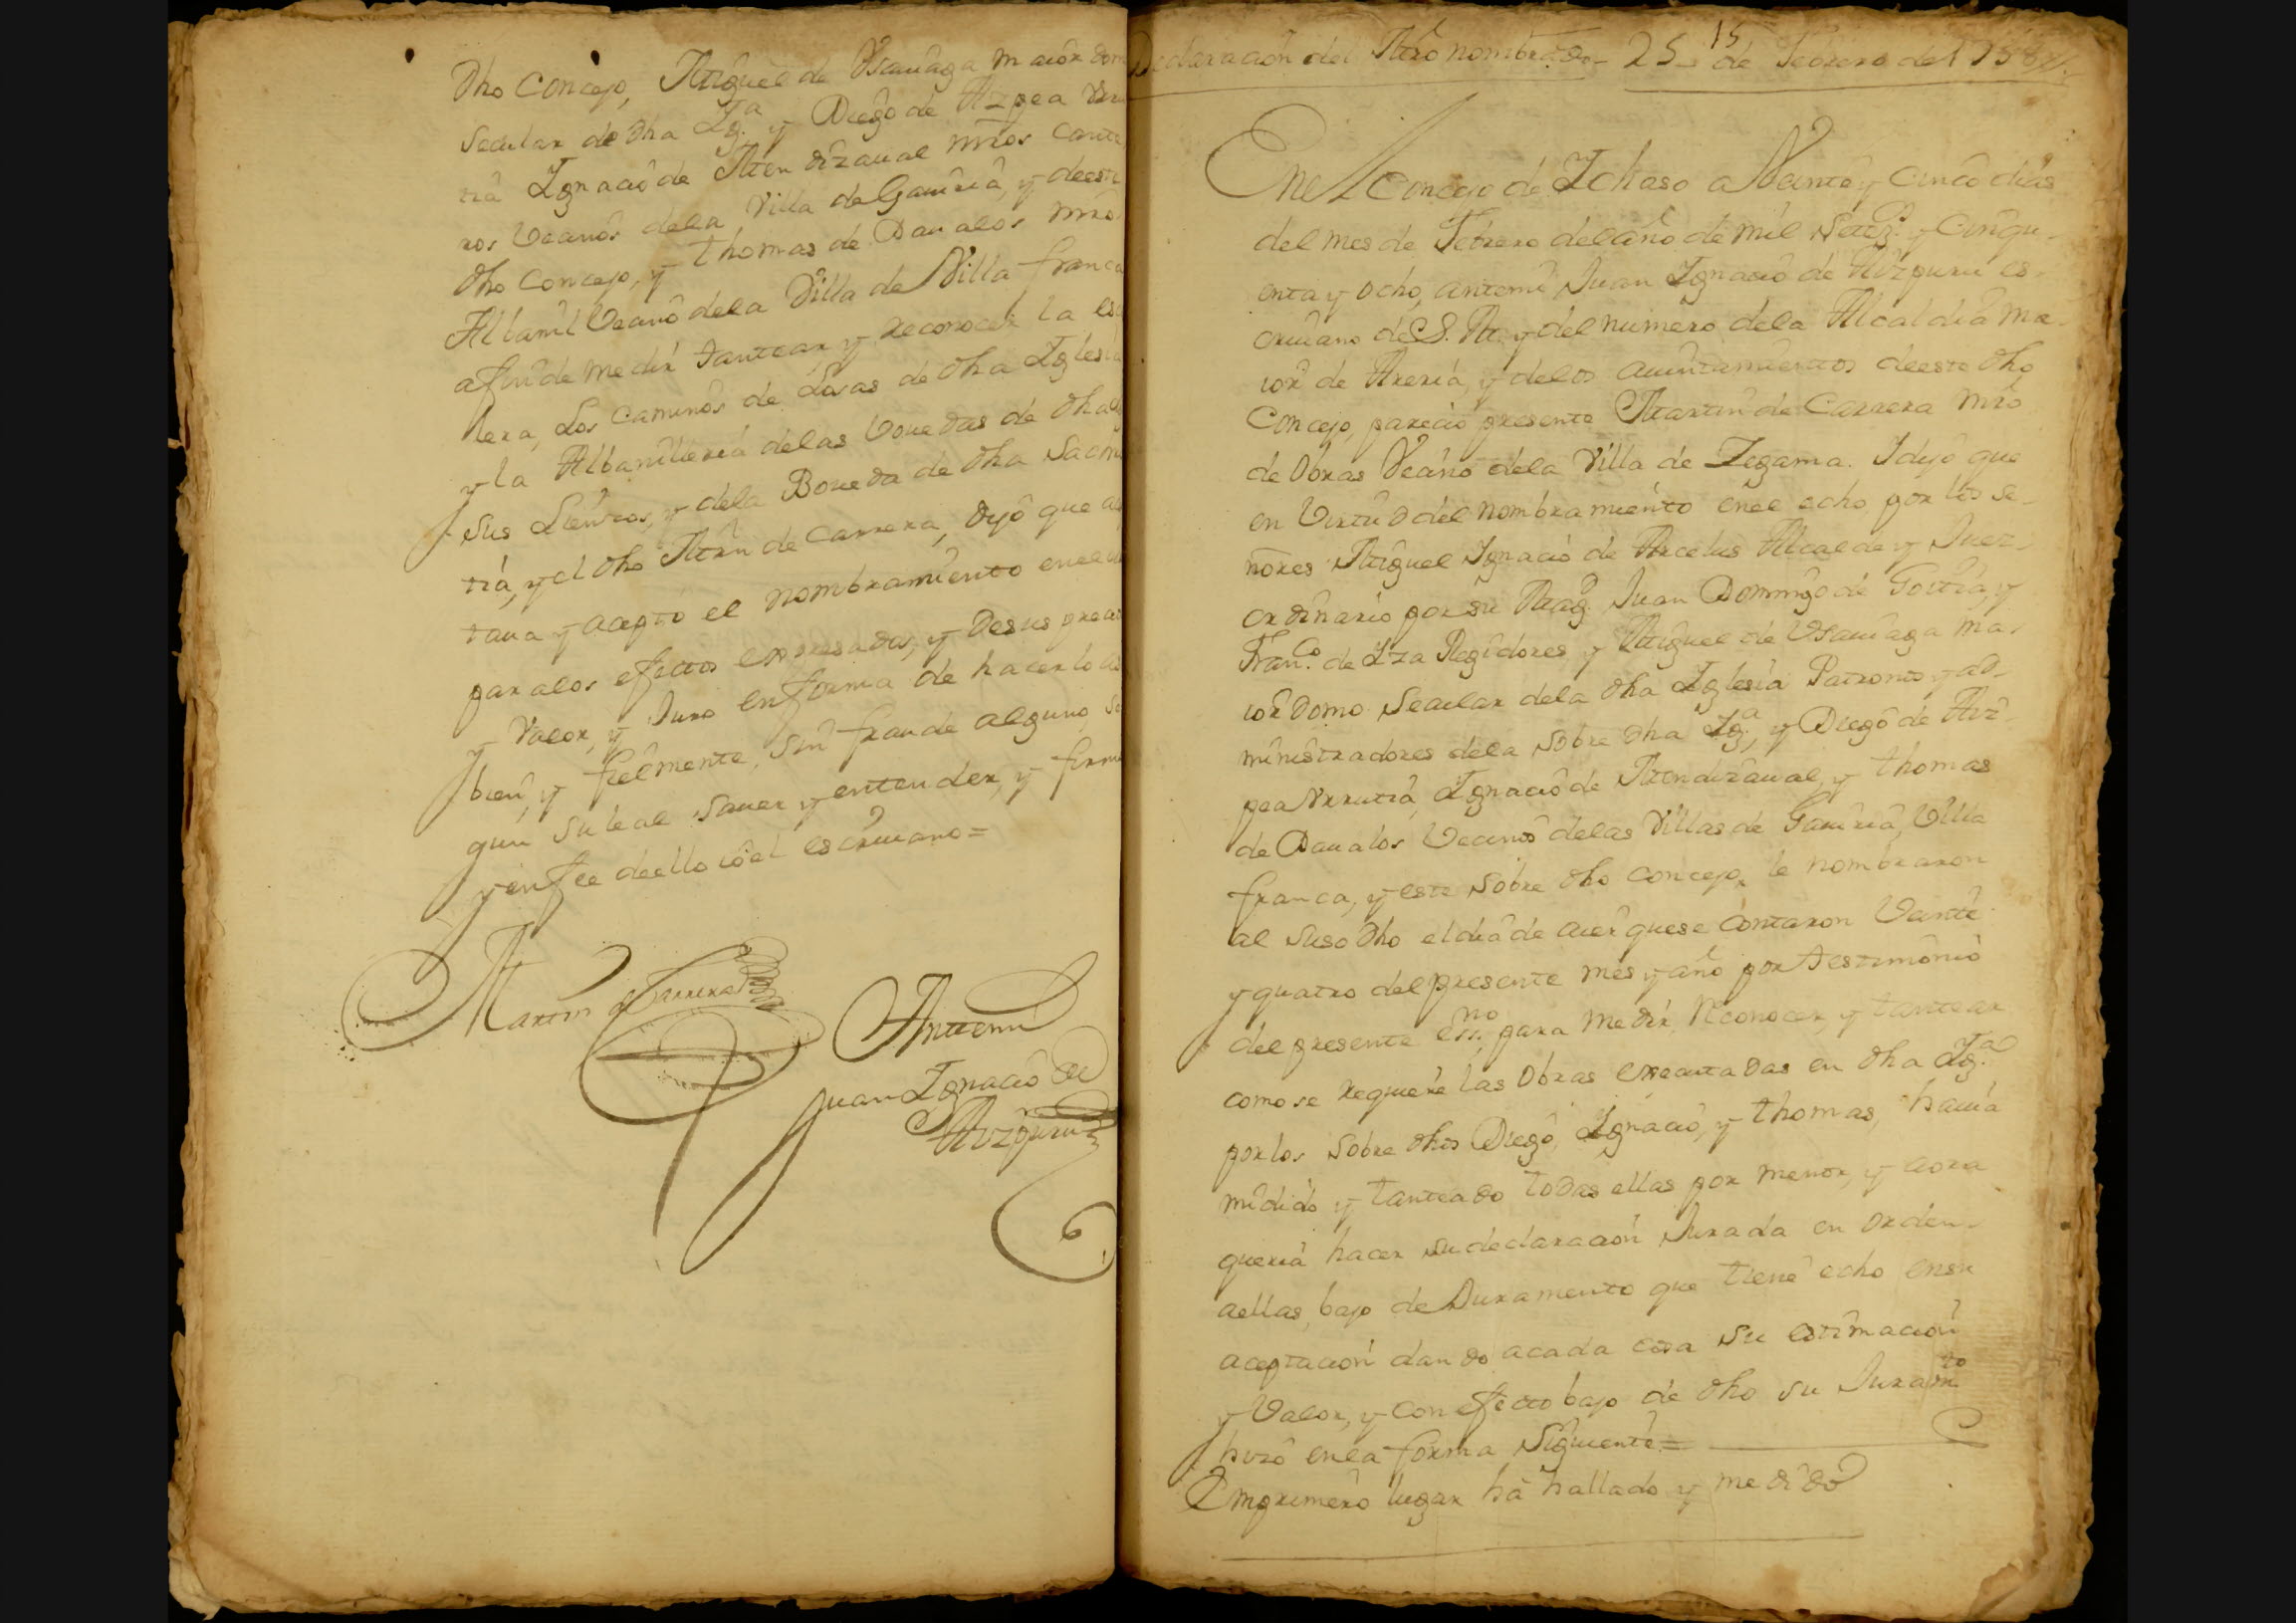 Dho Concejo, Miguel de Vsauiaga maior dom
Secular de dha Yg.ª y Diego de Azpea Vrru
tia Ygnacio de Mendizaual mros cante
ros Vecinos dela Villa de Gauiria, y deeste
dho Concejo, y Thomas de Daualos mro
Albanil Vecino dela Villa de Villa franca
afin de medir tantear y reconocer la esca
lera, Los Caminos de Losas de dha Yglesia
y la Albanileria delas Vouedas de dha
Sus Lienzos, y dela Boueda de dha Sacris
tia, y el dho Mrñ de Carrera, dijo que açep
taua y acepto el nombramiento enel
paralos efectos expresados, y desus precio
y Valor, y Juro enforma de hacerlo
bien, y fielmente, sin fraude alguno, se
gun suleal sauer y entender, y firmo
y enfee deello io el escriuano =
Martin de Carrera
Antemi
Juan Ygnacio de
Aizpuru
Declaracion del Mro nombrado - 25 de Febrero del 1758
15
Enel Concejo de Ychaso a Veinte y Cinco dias
del mes de Febrero delaño de mil Setez.s y Cinqu-
enta y Ocho, antemi Juan Ygnacio de Aizpuru es-
criuano de S. M. y del numero dela Alcaldia Ma-
ior de Areria, y delos Aiuntamientos deeste dho
Concejo, parecio presente Martin de Carrera Mro
de Obras Vecino dela Villa de Zegama. Y dijo que
en Virtud del nombramiento enel echo por los se-
ñores Miguel Ygnacio de Arcelus Alcalde y Juez
ordinario por su Mag.d Juan Domingo de Goitia, y
Fran.co de Yza Regidores y Miguel de Vsauiaga ma-
ior domo Secular dela dha Yglesia Patronos y ad-
ministradores dela sobre dha Yg.ª, y Diego de Azi-
pea Vrrutia, Ygnacio de Mendizaual, y Thomas
de Daualos Vecinos delas Villas de Gauiria, Villa
franca, y este Sobre dho Concejo, le nombraron
al Suso dho eldia de aier quese Contaron Veinte
y quatro del presente mes y año por testimonio
del presente ess.no para medir, Reconocer, y tantear
como se requiere las Obras executadas en dha Yg.ª
porlos Sobre dhos Diego, Ygnacio, y Thomas, hauia
medido y tanteado todas ellas por menor, y aora
queria hacer su declaracion Jurada en orden-
aellas, bajo de Juramento que tiene echo ensu
aceptacion dando acada cosa su estimacion
y Valor, y con efecto bajo de dho su Juram.to
hizo enla forma Siguiente =
Emprimero lugar ha hallado y medido